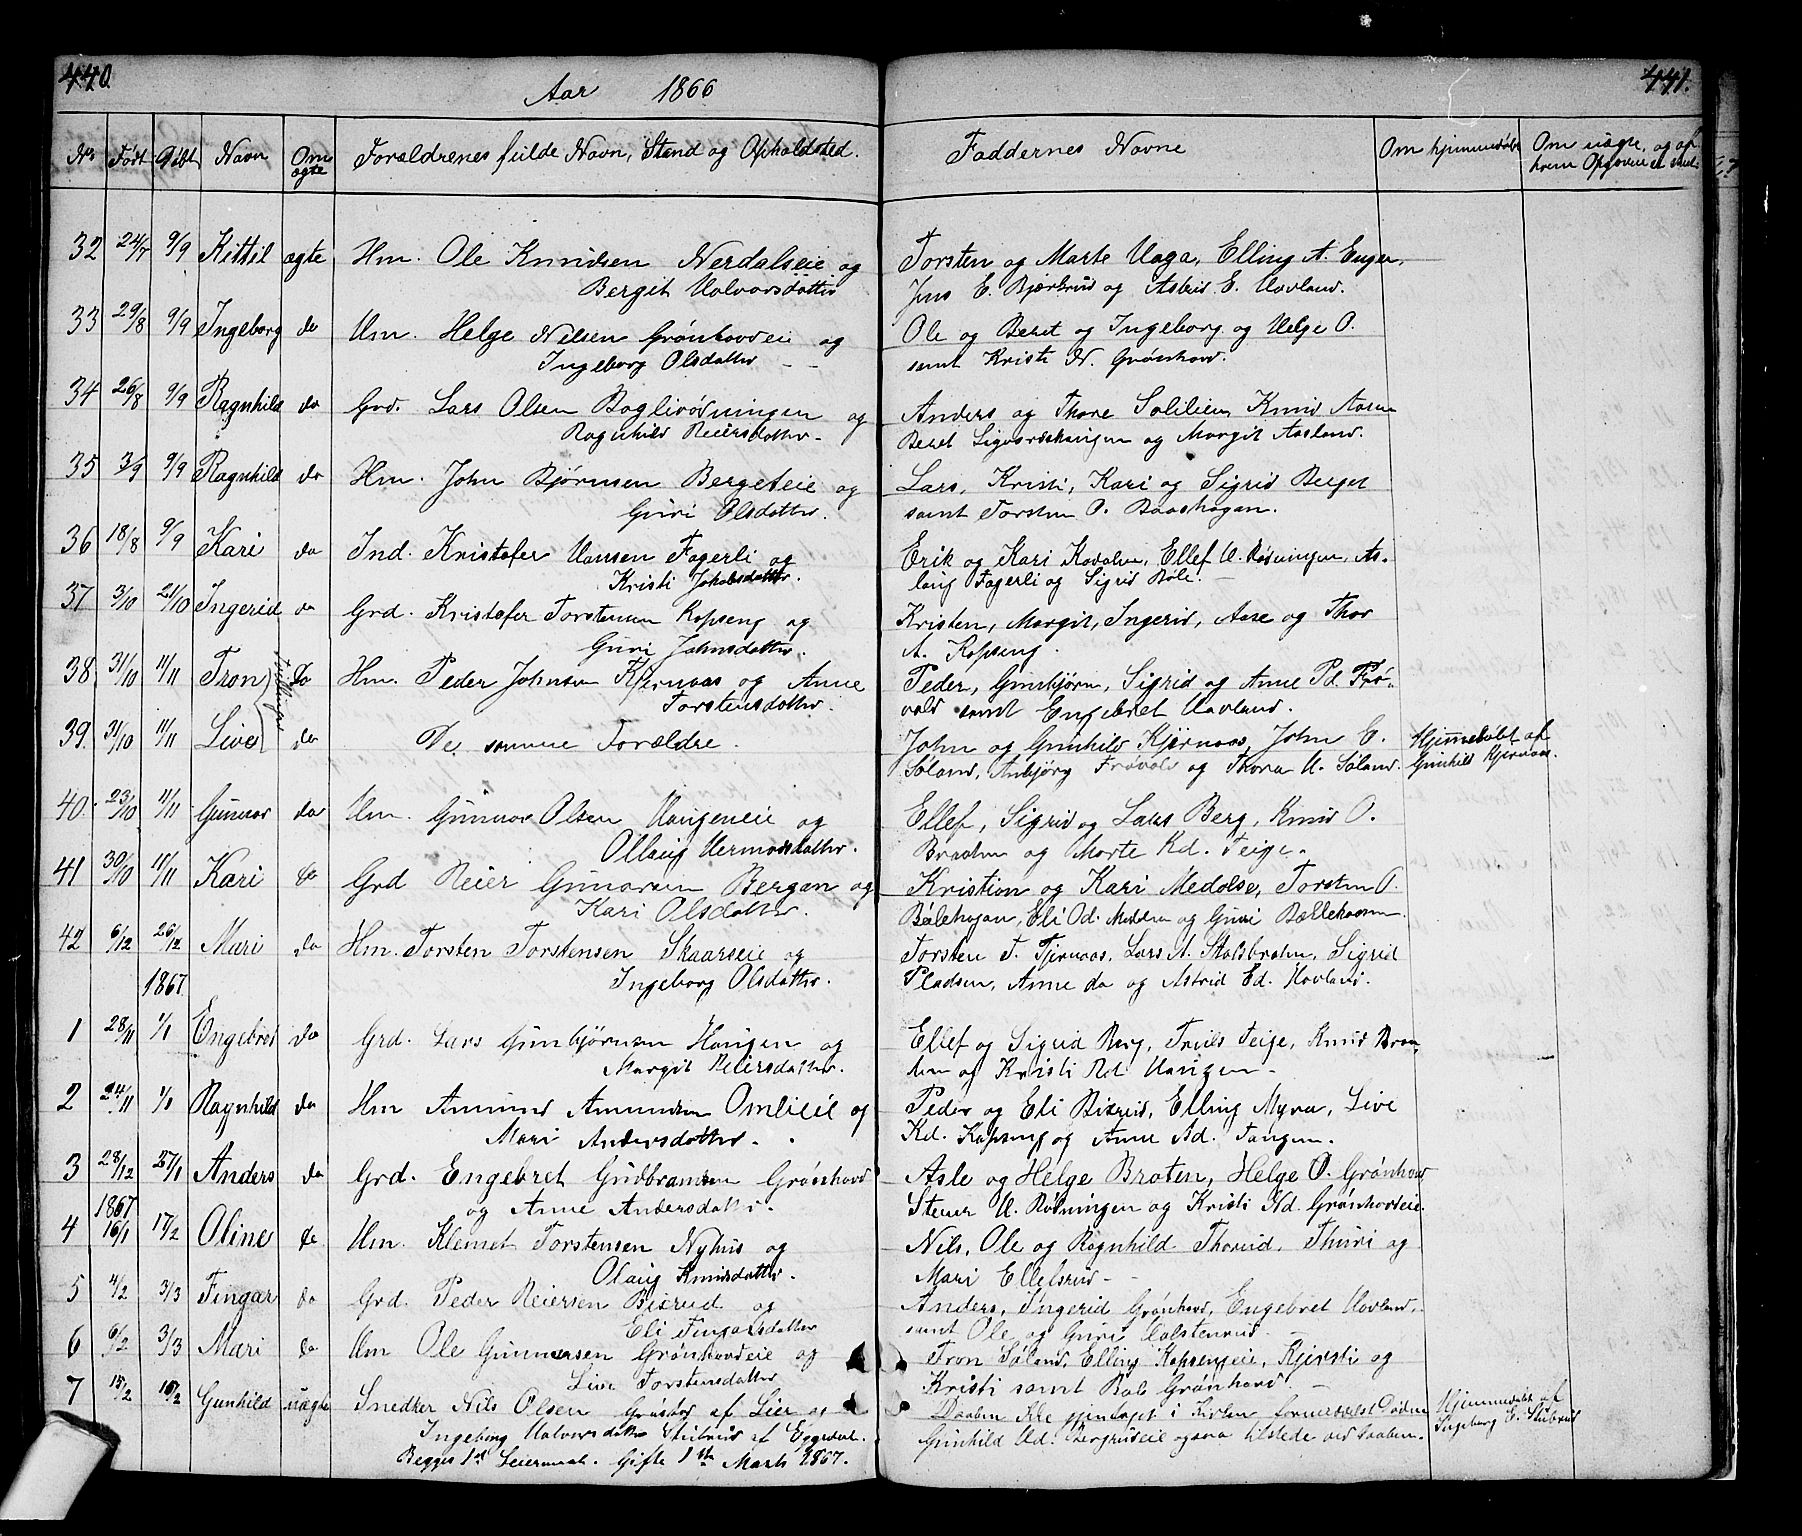 440.
Aar 1866
441.
No Født Døbt Navn Om ægte Forældrenes fulde Navn, Stand og Opholdsted. Faddernes Navne Om hjemmedøbt Om uægte, og af hvem Opgaven er
32 24/7 9/9 Kittil ægte Hm. Ole Knudsen Nerdalseie og Torsten og Marte Haga, Elling A. Enger,
Bergit Halvorsdatter Jens E. Bjærbrud og Astrid E. Hovland.
33 29/8 9/9 Ingeborg do Hm. Helge Nilsen Grønhovdeie og Ole og Beret og Ingeborg og Helge O.
Ingeborg Olsdatter samt Kristi N. Grønhovd.
34 26/8 9/9 Ragnhild do Grd. Lars Olsen Baglirødningen og Anders og Thore Solilien, Knud Aasen
Ragnhild Reiersdatter Beret og Margit Aasland.
35 3/9 9/9 Ragnhild do Hm. John Bjørnsen Bergeteie og Lars, Kristi, Kari og Sigrid Berget
Guri Olsdatter. samt Torsten O. Baashogan.
36 18/8 9/9 Kari do Ind. Kristofer Hansen Fagerli og Erik og Kari Kodalen, Ellef H. Rødningen, As-
Kristi Jakobsdatter. laug Fagerli og Sigrid Røli.
37 3/10 21/10 Ingerid do Grd. Kristofer Torstensen Kopseng og Kristen, Margit, Ingerid, Aase og Thor
Guri Johnsdatter. A. Kopseng.
38 31/10 11/11 Tron Tvillinger do Hm. Peder Johnsen Kjernaas og Anne Peder, Gunbjørn, Sigrid og Anne Pd. Frø-
Torstensdatter. vold samt Engebret Hovland.
39. 31/10 11/11 Live do De samme Forældre. John og Gunhild Kjernaas, John C. Hjemmedøbt af
Søland, Anbjørg Frøvold og Thora H. Søland. Gunhild Kjernaas.
40. 23/10 11/11 Gunnar do Hm. Gunnar Olsen Haugeneie og Ellef, Sigrid og Lars Berg, Knud O.
Ollaug Hermodsdatter. Braaten og Marte Kd. Teige.
41 30/10 11/11 Kari do Grd Reier Gunarsen Bergan og Kristian og Kari Medalse, Torsten P.
Kari Olsdatter. Bølehogan, Eli Od. og Guri
42 6/12 26/12 Mari do Hm. Torsten Torstensen Skaarseie og Torsten T. Tjernaas, Lars A. Stolsbraten, Sigrid
Ingeborg Olsdatter. Pladsen, Anne do og Astrid Ed. Hovland.
1867
1 28/11 1/1 Engebret do Grd. Lars Gunbjørnsen Haugen og Ellef og Sigrid Berg, Truls Teige, Knud Braa-
Margit Reiersdatter. ten og Kristi Rd Haugen
2 24/11 1/1 Ragnhild do Hm Amund Amundsen Omlieie og Peder og Eli Bixrud, Elling Myra, Live
Mari Andersdatter. Kd. Kopseng og Anne Ad. Tangen.
3 28/12 27/1 Anders do Grd. Engebret Gudbransen Grønhovd Asle og Helge Braten, Helge O. Grønhovd
og Anne Andersdatter. Stener H. Rødningen og Kristi Kd. Grønhovdeie.
1867
4 16/1 17/2 Oline do Hm. Klemet Torstensen Nyhus og Nils, Ole og Ragnhild Thorud, Thuri og
Olaug Knudsdatter. Mari Ellefsrud
5 4/2 3/3 Fingar do Grd. Peder Reiersen Bixrud og Anders, Ingerid Grønhovd, Engebret Hovland
Eli Fingalsdatter samt Ole og Guri Holstenrud.
6 6/2 3/3 Mari do Hm Ole Gunnersen Grønhovdeie og Tron Søland, Elling Kopsengeie, Kjersti og
Live Torstensdatter Kristi samt Grønhovd.
7 15/2 Gunhild uægte Snedker Nils Olsen af Lier og Daaben ikke gjentaget i Kirken formedelst Døden Hjemmedøbt af
Ingeborg Halvorsdatter af Eggedal. Gunhild Hd. ogsaa tilstede ved Daaben. Ingeborg E. Stubrud
Begges 1ste Leiermaal. Gifte 1ste Marts 1867.